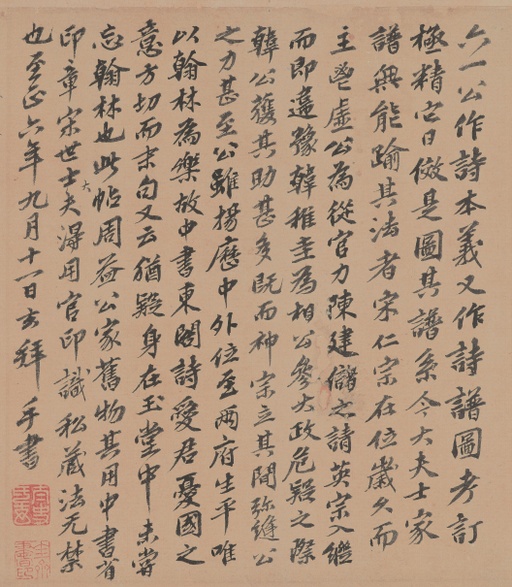 六一公作詩本義又作詩譜圖考訂
極精它日倣是圖其譜系今大夫士家
譜無能踰其法者宋仁宗在位歲久而
主鬯虛公為從官力陳建儲之請英宗入繼
而即違豫韓稚圭為相公參大政危疑之際
韓公獲其助甚多既而神宗立其間弥縫公
之力甚至公雖揚歷中外位至兩府生平唯
以翰林為樂故中書東閤詩愛君憂國之
意方切而末句又云猶疑身在玉堂中未嘗
忘翰林也此帖周益公家舊物其用中書省
印章宋世士大夫得用官印識私藏法无禁
也至正六年九月十一日玄拜手書